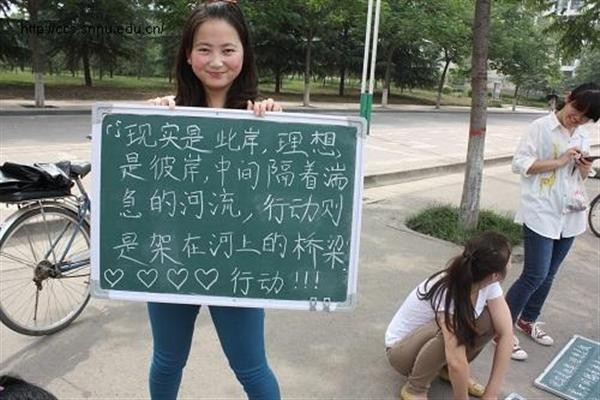 http://ccs.snnu.edu.cn/
“现实是此岸,理想
是彼岸,中间隔着湍
急的河流,行动则
是架在河上的桥梁
♡♡♡♡行动!!!